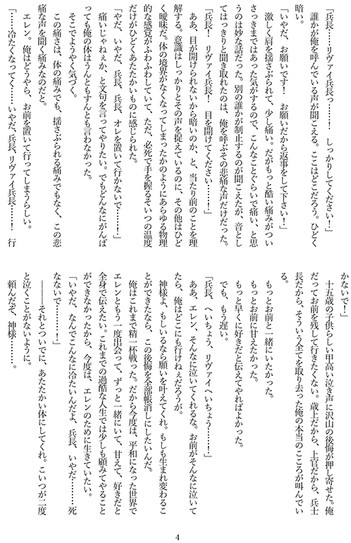 「兵長！　リヴァイ兵長っ……！　しっかりしてください！」
誰かが俺を呼んでいる声が聞こえる。ここはどこだろう。ひどく
暗い。
「いやだ、お願いです！　お願いだから返事をして下さい！」
激しく肩を揺さぶられて、少し痛い。だがもっと酷い痛みがつい
さっきまではあった気がするので、こんなことぐらいで痛い、と思
うのは妙な話だった。別の誰かが制止するのが聞こえたが、音とし
てはっきりと聞き取れたのは、俺を呼ぶその悲痛な声だけだった。
「兵長、リヴァイ兵長！　目を開けてください……！」
ああ、目が開けられないから暗いのか、と、当たり前のことを理
解する。意識はしっかりとその声を捉えているのに、その他はひど
く曖昧だ。体の境界がなくなってしまったかのようにあらゆる物理
的な感覚がふわふわしていて、ただ、必死で手を握るそいつの温度
だけがひどくあたたかいものに感じられた。
「やだ、いやだ、兵長、兵長、オレを置いて行かないで……！」
痛いじゃねぇか、と文句を言ってやりたい。でもどんなにがんば
っても俺の体はうんともすんとも言わなかった。
そこでようやく気づく。
この痛さは、体の痛みでも、揺さぶられる痛みでもなく、この悲
痛な声を聞く痛みなのだと。
エレン。俺はどうやら、お前を置いて行ってしまうらしい。
「……冷たくなってく……いやだ、兵長、リヴァイ兵長……！　行
かないで！」
十五歳の子供らしい甲高い泣き声に沢山の後悔が押し寄せた。俺
だってお前を残して行きたくない。歳上だから、上官だから、兵士
長だから、そういう全てを取り去った俺の本当のこころが叫んでい
る。
もっとお前と一緒にいたかった。
もっとお前に甘えたかった。
もっと早くに好きだと伝えてやればよかった。
でも、もう遅い。
「兵長、へいちょう、リヴァイへいちょう……！」
ああ、エレン、そんなに泣いてくれるな。お前がそんなに泣いて
たら、俺はどこにも行けねぇだろうが。
神様よ、もしいるなら願いを叶えてくれ。もしも生まれ変わるこ
とができたなら、この後悔を全部帳消しにしたいんだ。
俺はこれまで精一杯戦った。だから今度は、平和になった世界で
エレンともう一度出会って、ずっと一緒にいて、甘えて、好きだと
全身で伝えたい。これまでの過酷な人生では少しも顧みてやること
ができなかったから、今度は、エレンのために生きていきたい。
「いやだ、なんでこんなに冷たいんだよ、兵長、いやだ……死
なないで……！」
――それとついでに、あたたかい体にしてくれ。こいつが二度
と泣くことがないように。
頼んだぞ、神様……。
4